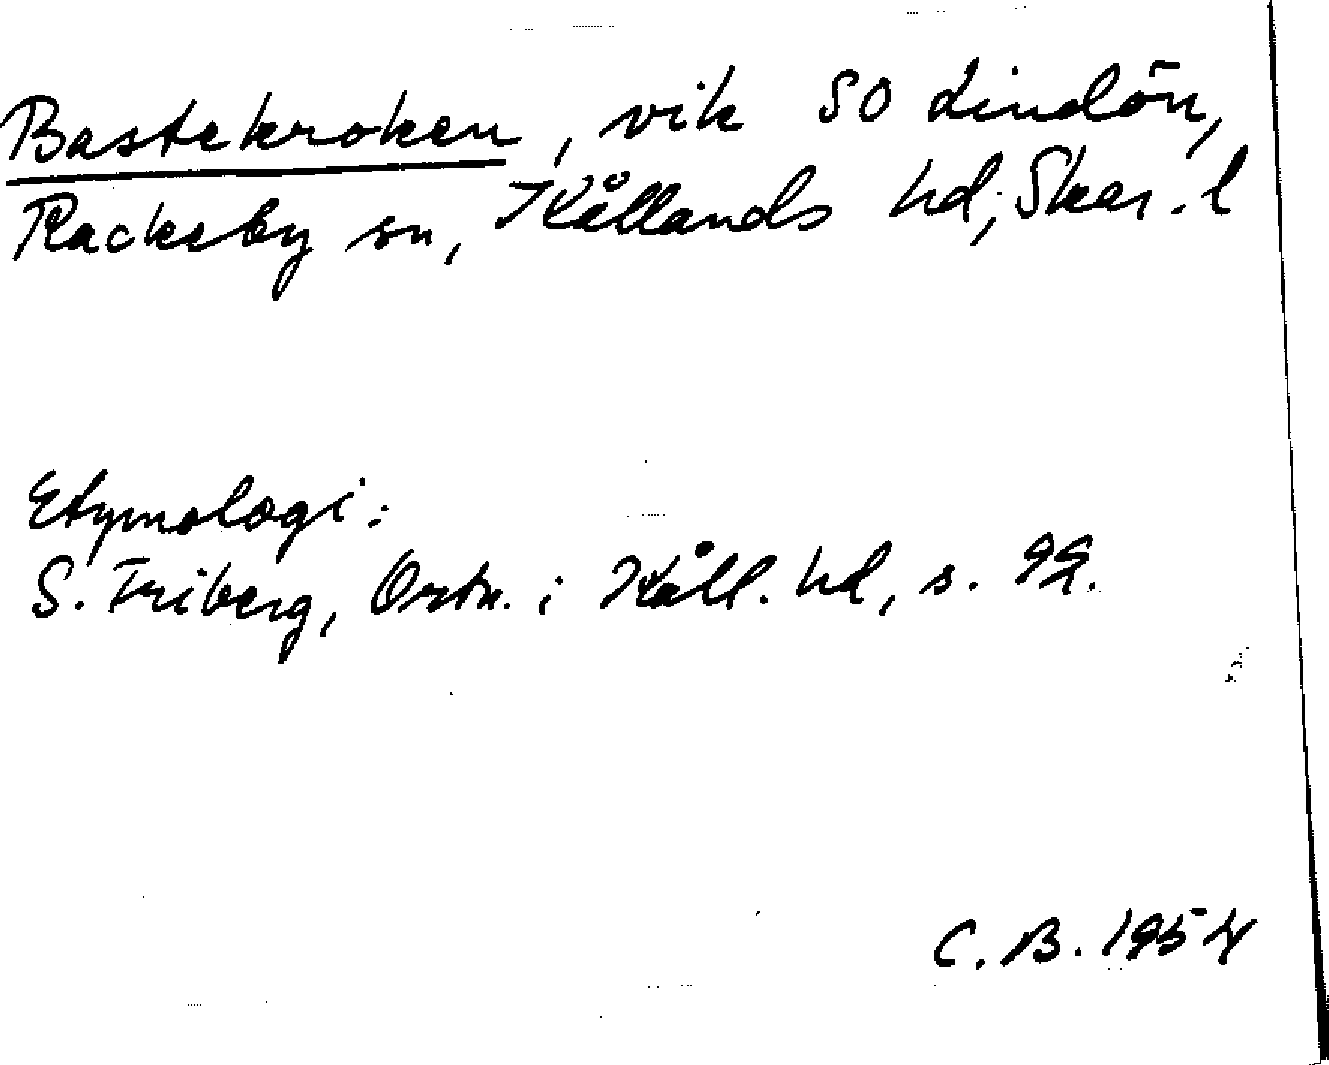 Bastekroken, vik SO Lindön,
Rackeby sn, Kållands hd, Skar. l
Etymologi:
S. Friberg, Ortn. i Kåll. hd, s. 99.
C. B. 1954